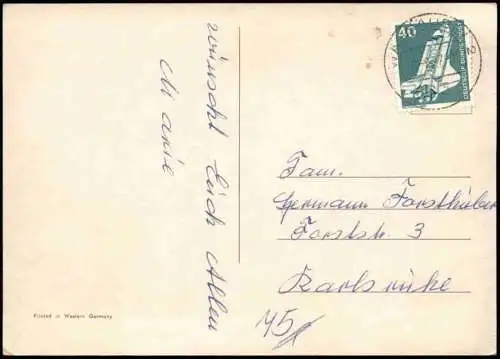 wünscht Euch Allen
Marie
40
DEUTSCHE BUNDESPOST
Fam.
Hermann Forsthuber
Forststr. 3
Karlsruhe
Printed in Western Germany